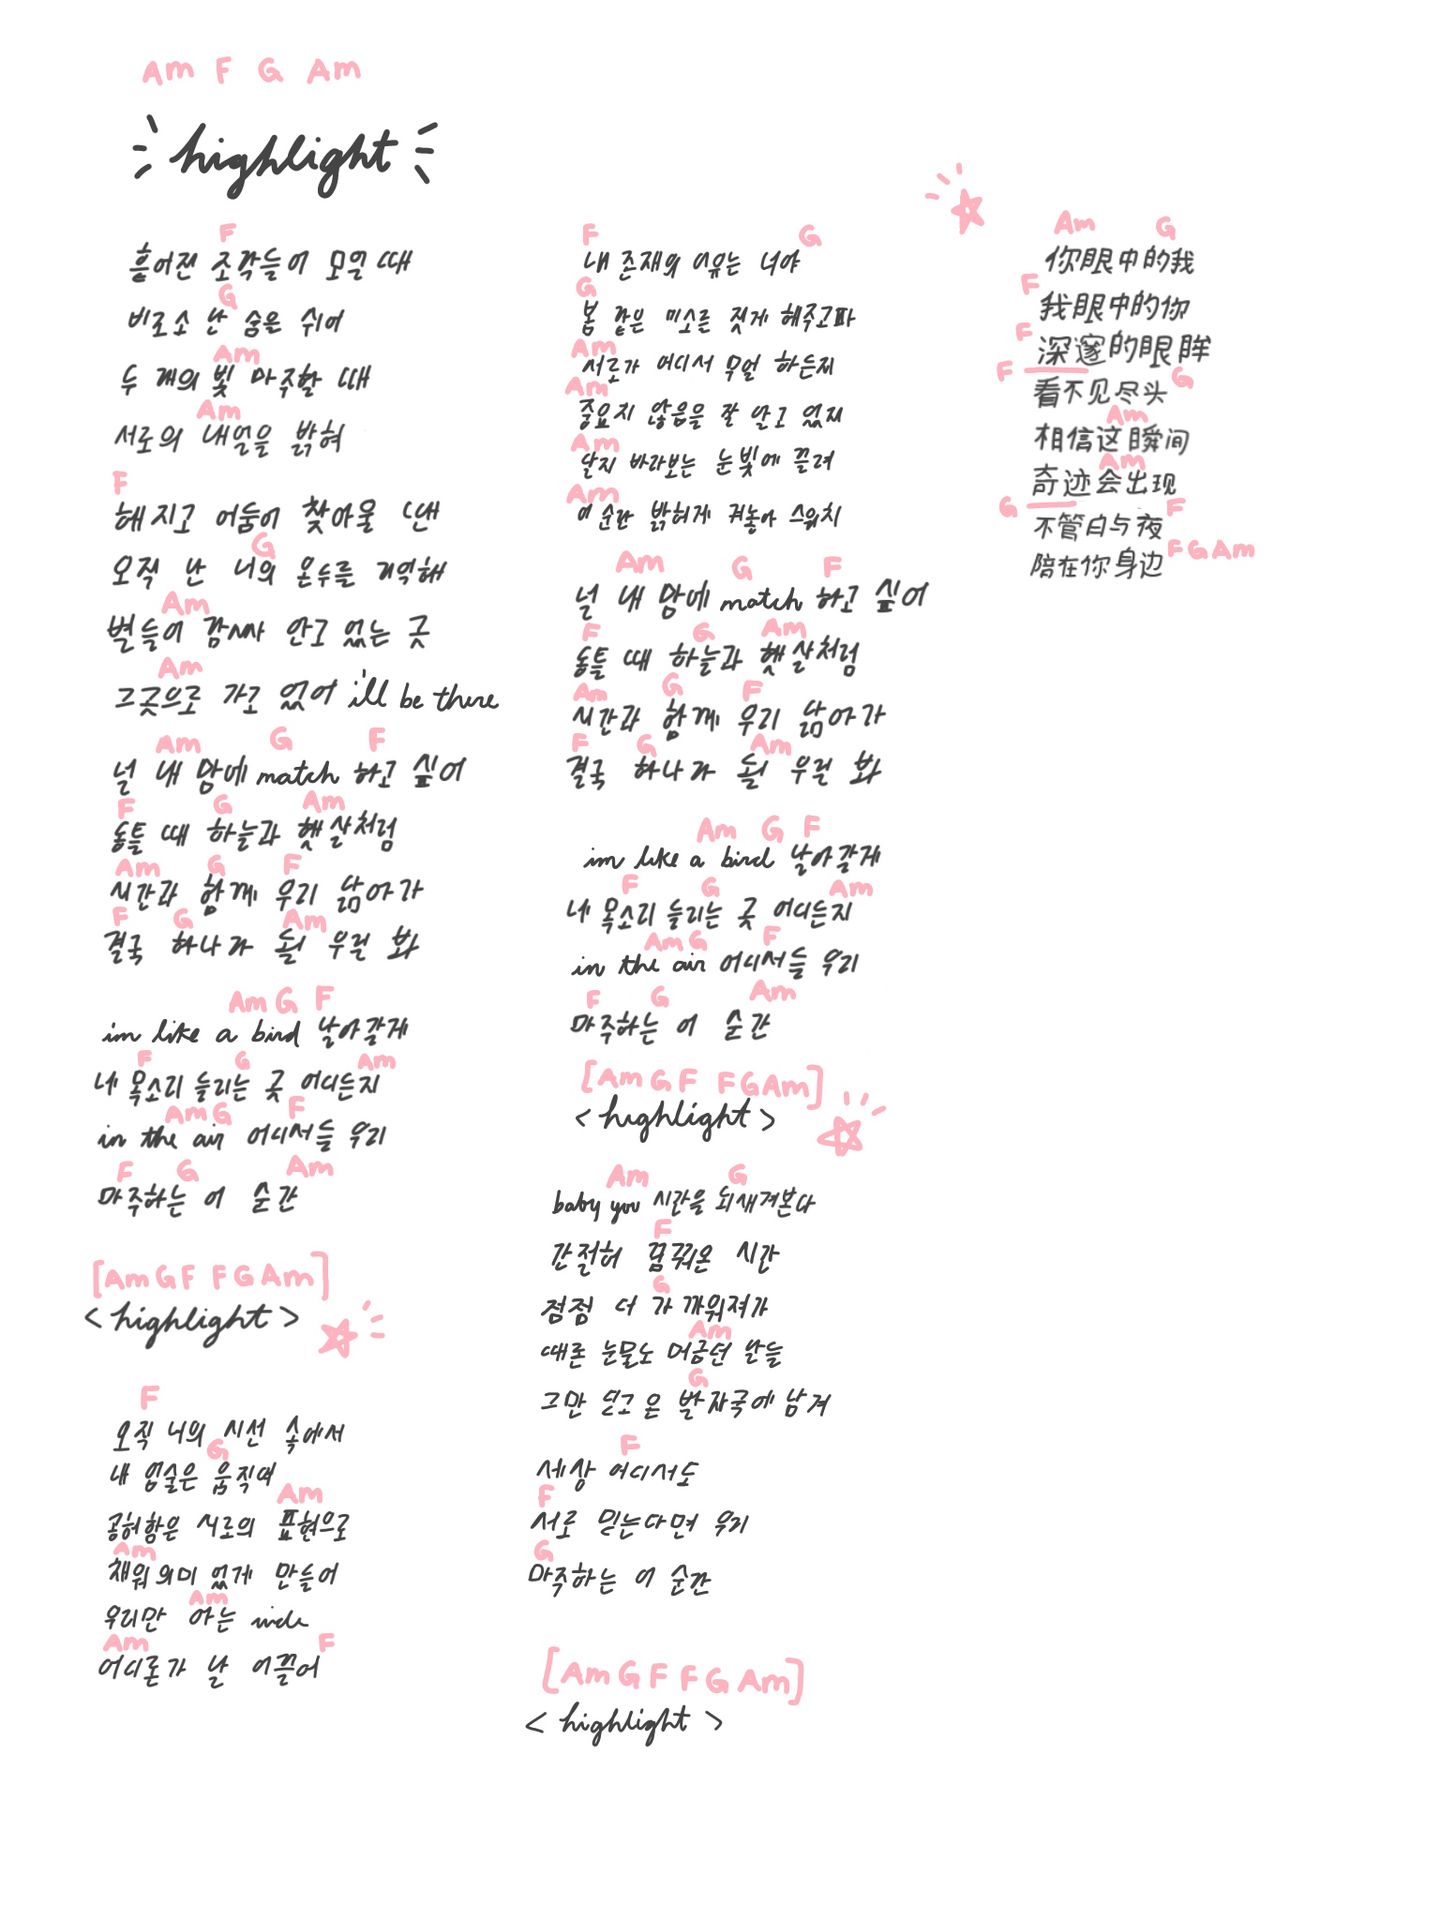 Am F G Am
highlight
F
흩어진 조각들이 모일 때
G
비로소 난 숨을 쉬어
Am
두 개의 빛 마주할 때
Am
서로의 내일을 밝혀
F
해 지고 어둠이 찾아올 땐
G
오직 난 너의 온도를 기억해
Am
별들이 감싸 안고 있는 곳
Am
그곳으로 가고 있어 i'll be there
Am G F
널 내 맘에 match 하고 싶어
F G Am
동틀 때 하늘과 햇살처럼
Am G F
시간과 함께 우리 닮아가
F G Am
결국 하나가 될 우릴 봐
Am G F
im like a bird 날아갈게
F G Am
네 목소리 들리는 곳 어디든지
Am G F
in the air 어디서들 우리
F G Am
마주하는 이 순간
[Am G F F G Am]
<highlight>
F
오직 너의 시선 속에서
G
내 입술은 움직여
Am
공허함은 서로의 표현으로
Am
채워 의미 있게 만들어
Am
우리만 아는
Am F
어디론가 날 이끌어
F G
내 존재의 이유는 너야
G
봄 같은 미소를 짓게 해주고파
Am
서로가 어디서 무얼 하든지
Am
중요치 않음을 잘 알고 있지
Am
달지 바라보는 눈빛에 끌려
Am
이 순간 밝히게 켜놓아 스위치
Am G F
널 내 맘에 match 하고 싶어
F G Am
동틀 때 하늘과 햇살처럼
Am G F
시간과 함께 우리 닮아가
F G Am
결국 하나가 될 우릴 봐
Am G F
im like a bird 날아갈게
F G Am
네 목소리 들리는 곳 어디든지
Am G F
in the air 어디서들 우리
F G Am
마주하는 이 순간
[Am G F F G Am]
<highlight>
Am G
baby you 시간을 되새겨본다
F
간절히 꿈꿔온 시간
G
점점 더 가까워져가
Am
때론 눈물도 머금던 날들
G
그만 딛고 온 발자국에 남겨
F
세상 어디서도
F
서로 믿는다면 우리
G
마주하는 이 순간
[Am G F F G Am]
<highlight>
Am G
你眼中的我
F
我眼中的你
F
深邃的眼眸
F G
看不见尽头
Am
相信这瞬间
Am
奇迹会出现
G F
不管白与夜
F G Am
陪在你身边